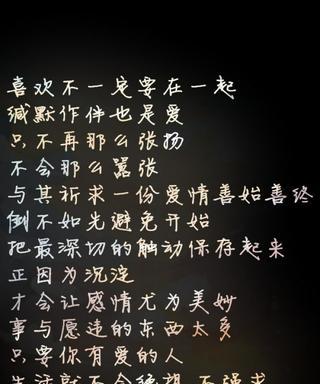 喜欢不一定要在一起
缄默作伴也是爱
只不再那么张扬
不会那么嚣张
与其祈求一份爱情善始善终
倒不如先避免开始
把最深切的触动保存起来
正因为沉淀
才会让感情尤为美妙
事与愿违的东西太多
只要你有爱的人